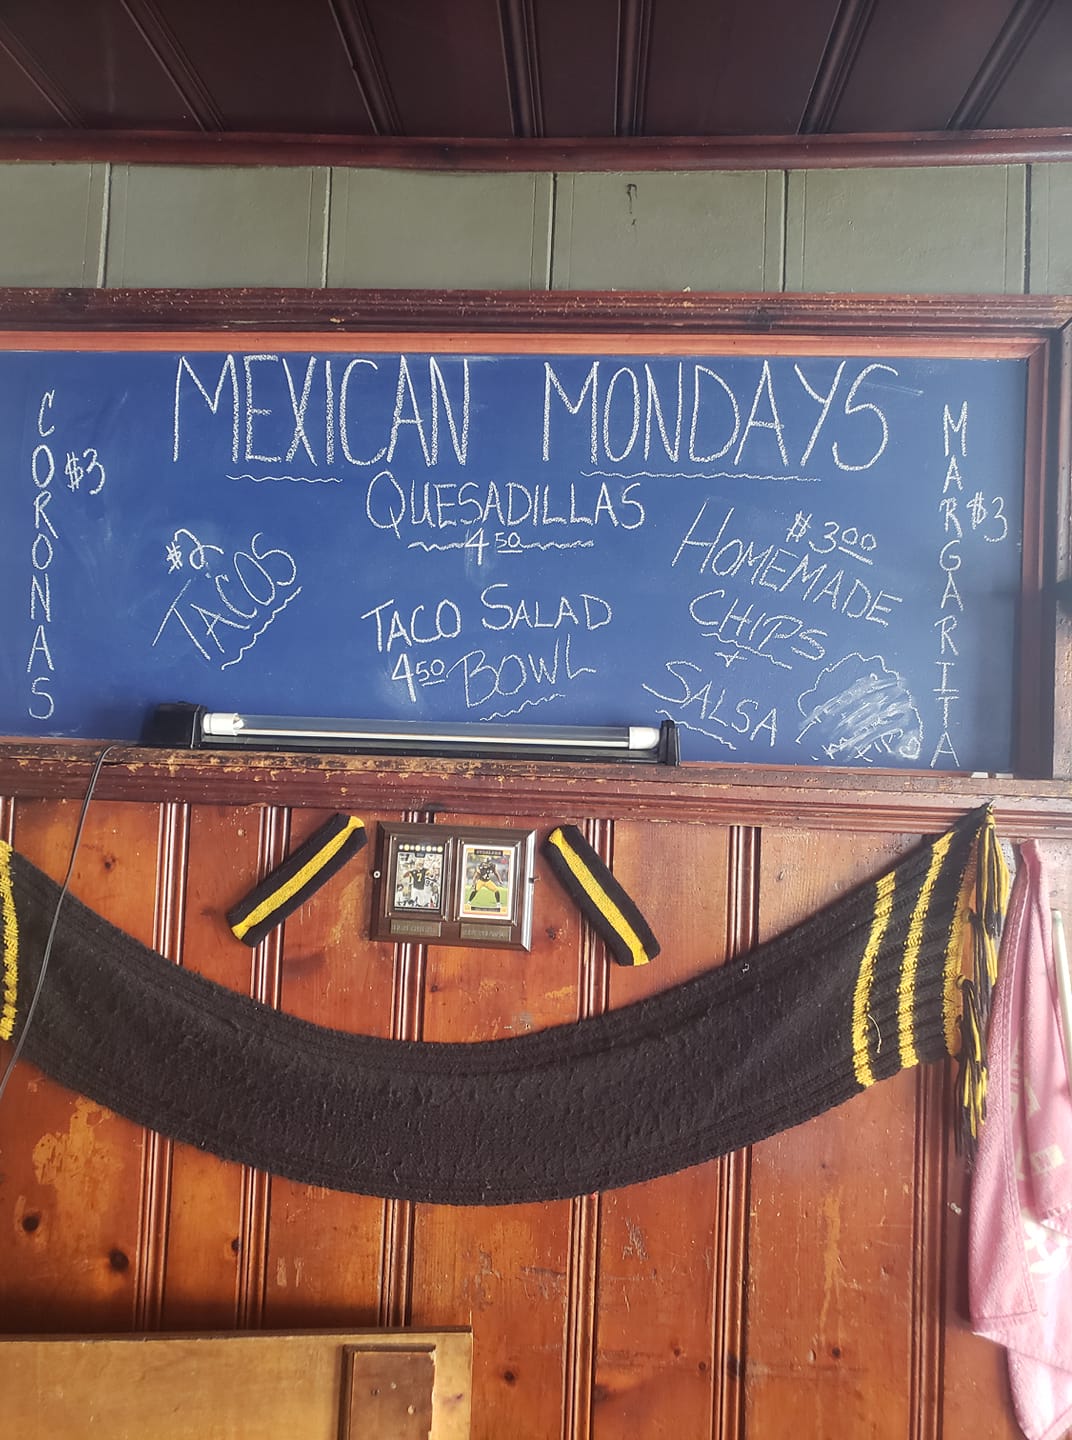 MEXICAN MONDAYS
CORONAS
$3
QUESADILLAS
4.50
$2
TACOS
TACO SALAD
4.50 BOWL
$3.00
HOMEMADE
CHIPS
+
SALSA
MARGARITA
$3
STEELERS